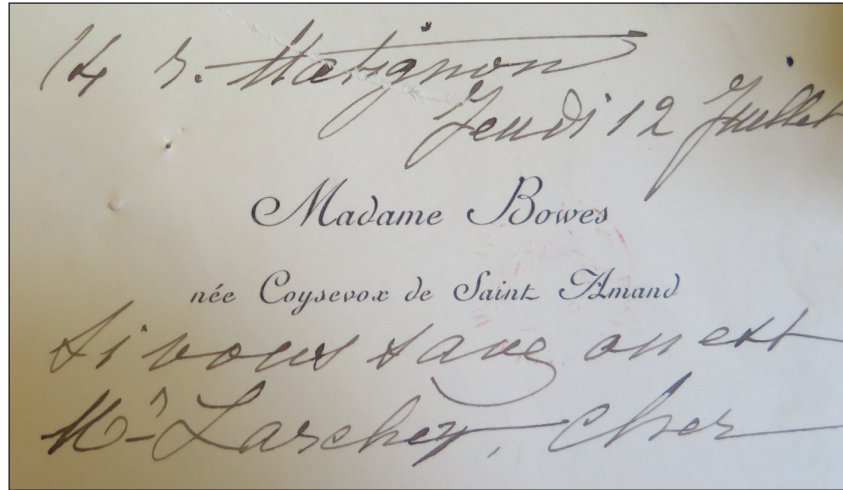 14 r. Matignon
Jeudi 12 Juillet
Madame Bowes
née Coysevox de Saint Amand
Si vous savez ou est
Mr Larchey, cher